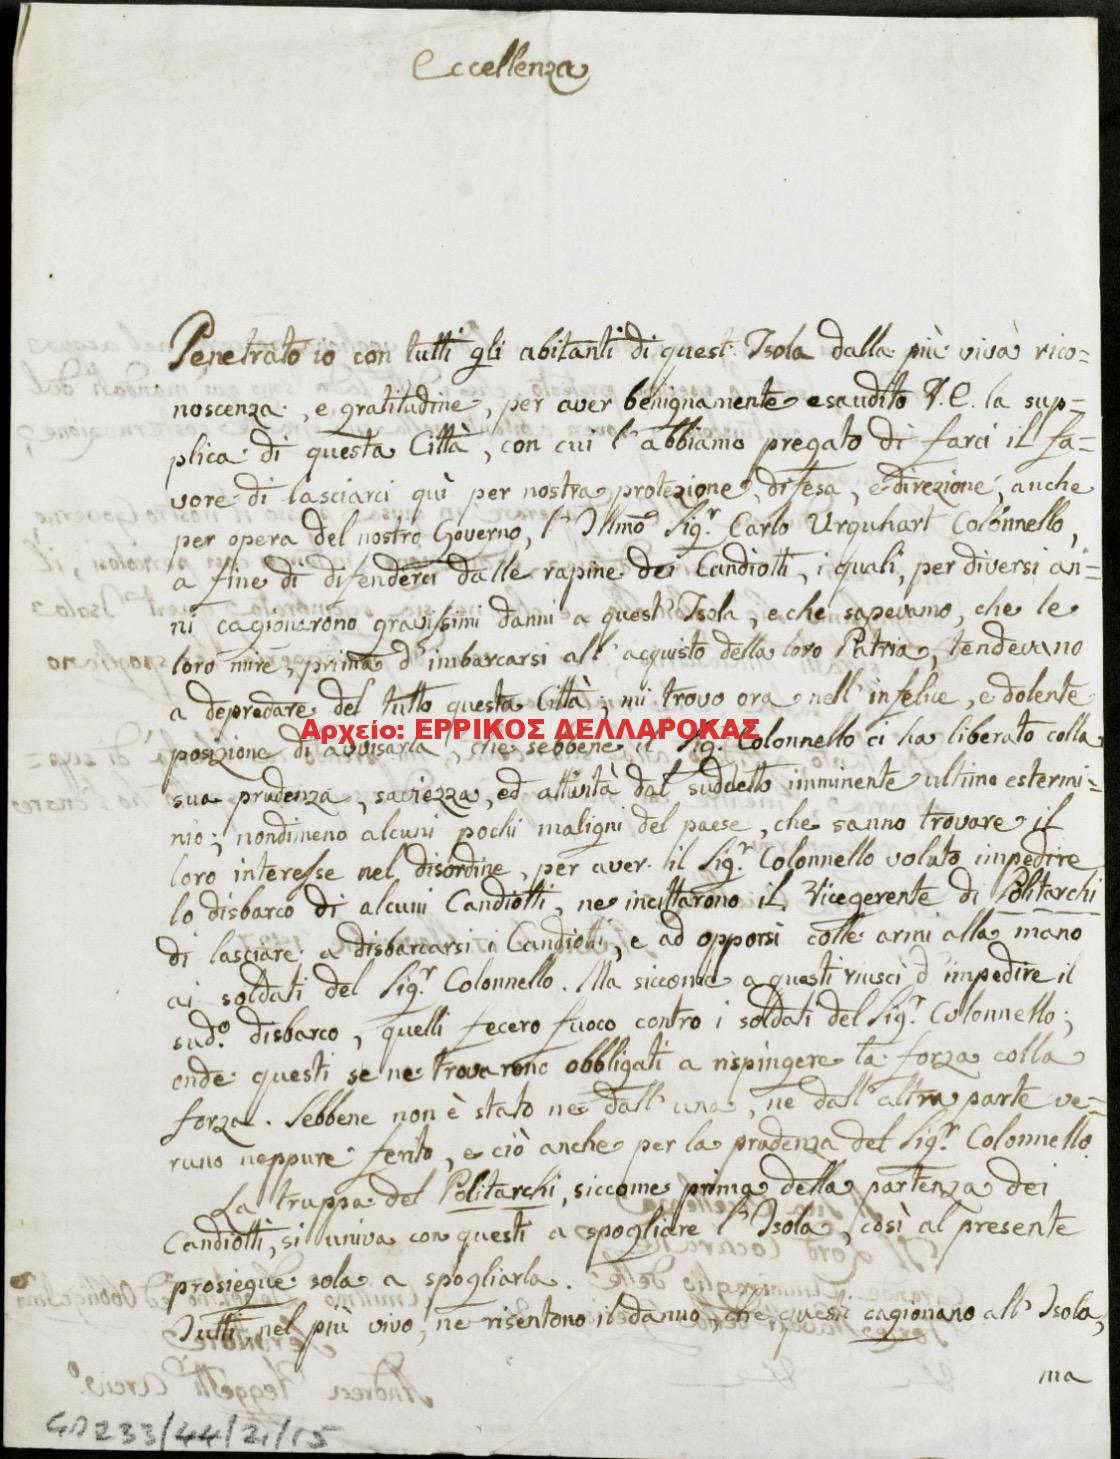 Eccellenza
Penetrato io con tutti gli abitanti di quest' Isola dalla più viva rico=
noscenza, e gratitudine, per aver benignamente esaudito V.E. la sup=
plica di questa Città, con cui l'abbiamo pregato di farci il fa=
vore di lasciarci quì per nostra protezione, difesa, e direzione, anche
per opera del nostro Governo, l'Illmo Sigr. Carlo Urquhart Colonnello,
a fine di difenderci dalle rapine dei Candiotti, i quali, per diversi an=
ni cagionarono gravissimi danni a quest' Isola, e che sapevamo, che le
loro mire, prima d'imbarcarsi all'acquisto della loro Patria, tendevano
a depredare del tutto questa Città; mi trovo ora nell'infelice, e dolente
Αρχείο: ΕΡΡΙΚΟΣ ΔΕΛΛΑΡΟΚΑΣ
posizione di avvisarla, che sebbene il Sigr. Colonnello ci ha liberato colla
sua prudenza, saviezza, ed attività dal suddetto imminente ultimo estermi=
nio; nondimeno alcuni pochi maligni del paese, che sanno trovare il
loro interesse nel disordine, per aver il Sigr. Colonnello voluto impedire
lo disbarco di alcuni Candiotti, ne incittarono il Vicegerente di Politarchi
di lasciare a disbarcarsi i Candiotti, e ad opporsi colle armi alla mano
ai soldati del Sigr. Colonnello. Ma siccome a questi riuscì d'impedire il
sudo. disbarco, quelli fecero fuoco contro i soldati del Sigr. Colonnello;
onde questi se ne trovarono obbligati a rispingere la forza colla
forza. Sebbene non è stato ne dall'una, ne dall'altra parte ve=
runo neppure ferito, e ciò anche per la prudenza del Sigr. Colonnello.
La truppa del Politarchi, siccome prima della partenza dei
Candiotti, si univa con questi a spogliare l'Isola, così al presente
prosiegue sola a spogliarla.
Tutti nel più vivo, ne risentono il danno, che questi cagionano all'Isola,
ma
GD233/44/21/15